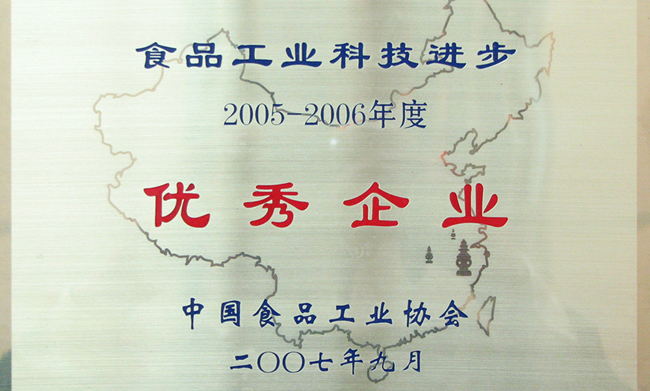 食品工业科技进步
2005-2006年度
优秀企业
中国食品工业协会
二〇〇七年九月